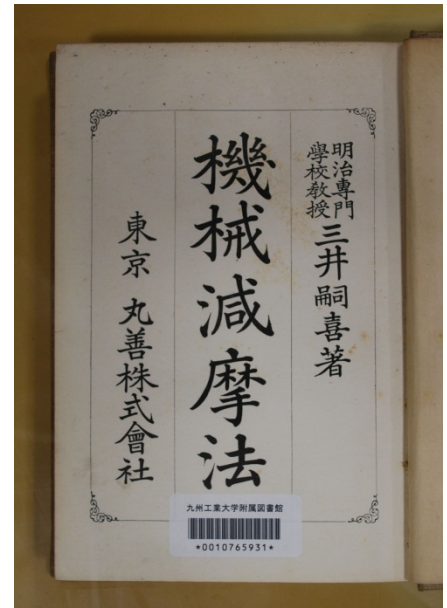 明治專門
學校教授
三井嗣喜著
機械減摩法
東京 丸善株式會社
九州工業大学附属図書館
*0010765931*